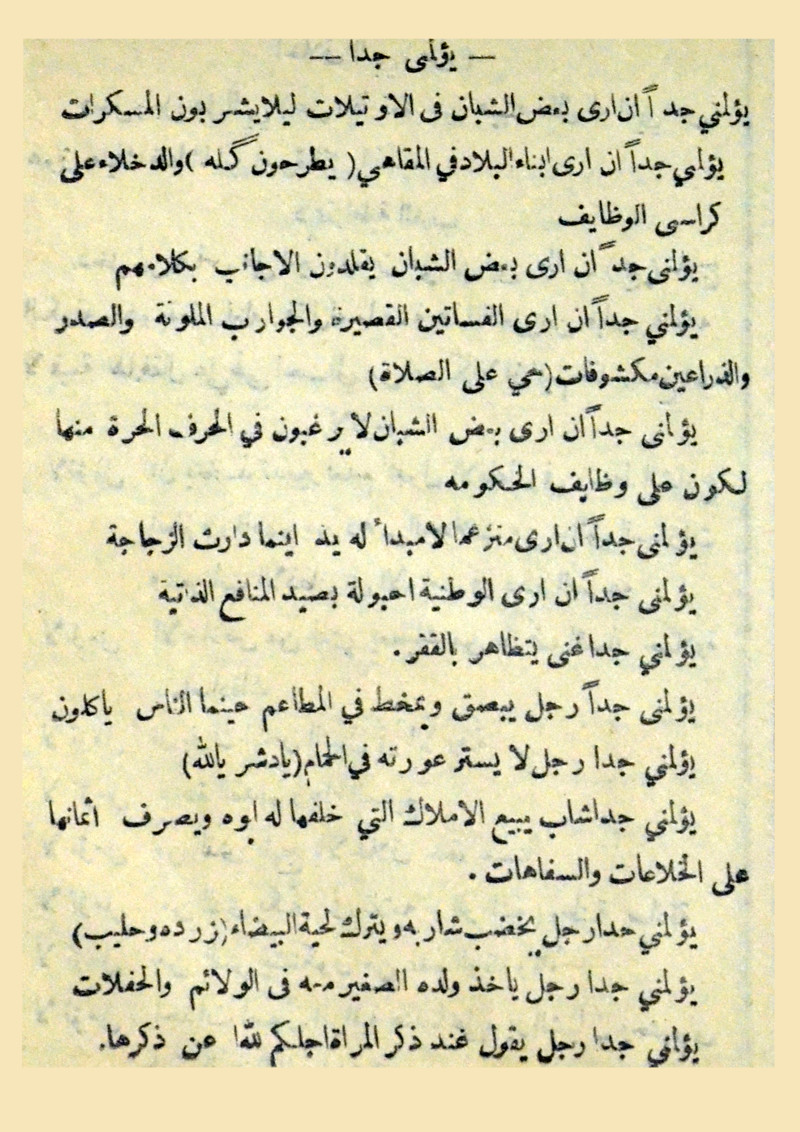 — يؤلمني جدا —
يؤلمني جداً ان ارى بعض الشبان فى الاوتيلات ليلا يشربون المسكرات
يؤلمني جداً ان ارى ابناء البلاد في المقاهي ( يطرحون گله ) والدخلاء على
كراسى الوظايف
يؤلمنى جداً ان ارى بعض الشبان يقلدون الاجانب بكلامهم
يؤلمني جداً ان ارى الفساتين القصيرة والجوارب الملونة والصدر
والذراعين مكشوفات (حي على الصلاة)
يؤلمنى جداً ان ارى بعض الشبان لا يرغبون في الحرف الحرة منها
لكون على وظايف الحكومه
يؤلمنى جداً ان ارى متزعما لامبدأ له يد اينما دارت الزجاجة
يؤلمنى جداً ان ارى الوطنية احبولة بصيد المنافع الذاتية
يؤلمني جدا غنى يتظاهر بالفقر .
يؤلمنى جداً رجل يبصق ويمخط في المطاعم حينما الناس ياكلون
يؤلمني جدا رجل لا يستر عورته في الحمام (يادشر يالله)
يؤلمني جدا شاب يبيع الاملاك التي خلفها له ابوه ويصرف اثمانها
على الخلاعات والسفاهات .
يؤلمني جدا رجل يخضب شاربه ويترك لحية البيضاء (زرده وحليب)
يؤلمني جدا رجل ياخذ ولده الصغير معه فى الولائم والحفلات
يؤلمني جدا رجل يقول عند ذكر المراة اجلكم الله عن ذكرها.